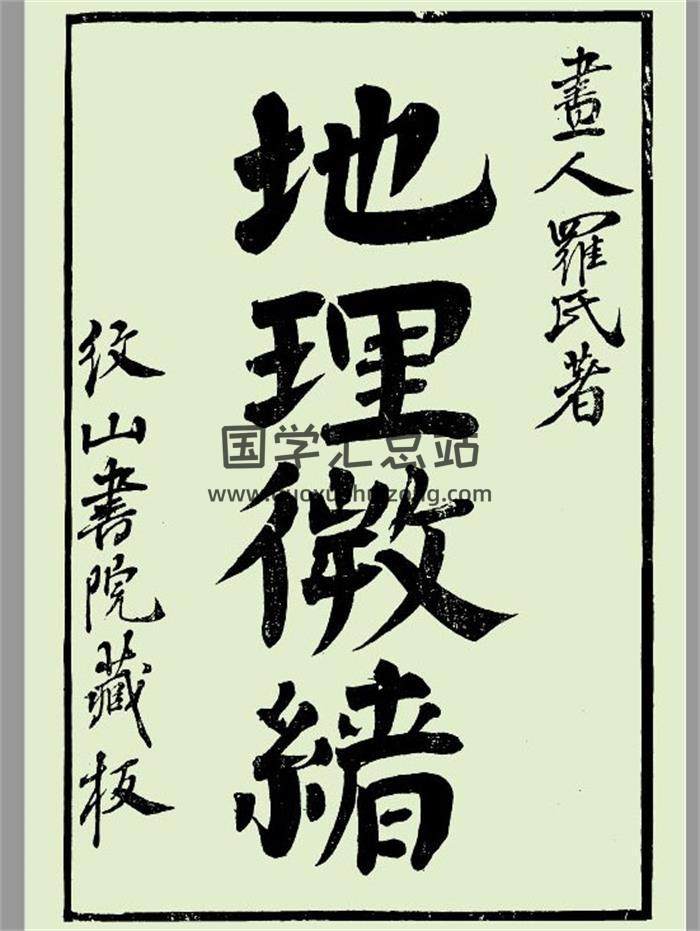 畫人羅氏著
地理微緒
紋山書院藏板
国学汇总站
www.guoxuehuizong.com